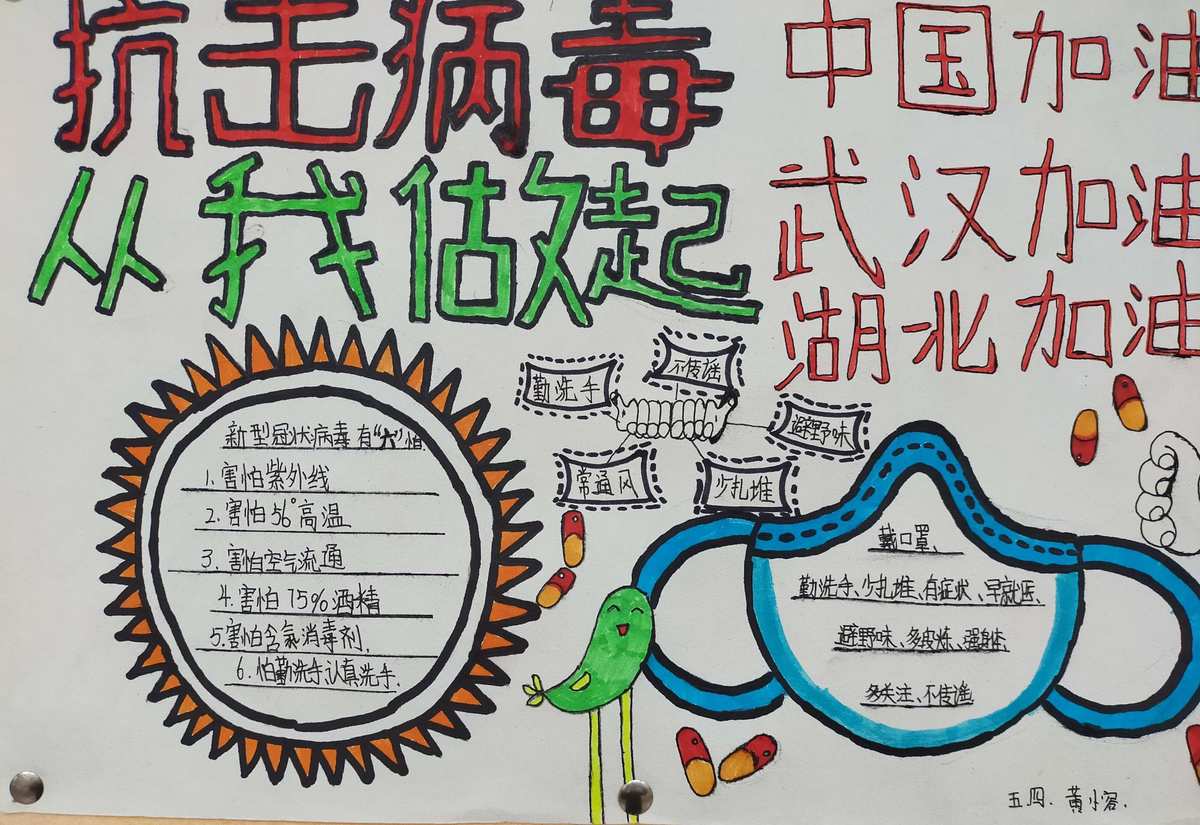 抗击病毒
从我做起
中国加油
武汉加油
湖北加油
新型冠状病毒有“六”怕
1.害怕紫外线
2.害怕56°高温
3.害怕空气流通
4.害怕75%酒精
5.害怕含氯消毒剂.
6.怕勤洗手认真洗手.
勤洗手
不传谣
避野味
常通风
少扎堆
戴口罩、
勤洗手、少扎堆、有症状、早就医、
避野味、多锻炼、强身体、
多关注、不传谣
五四.黄小容.